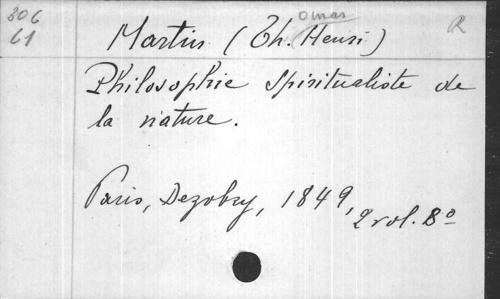 306
61
R
Martin (Th. omas Henri)
Philosophie spiritualiste de
la nature.
Paris, Dezobry, 1849, 2 vol. 8º